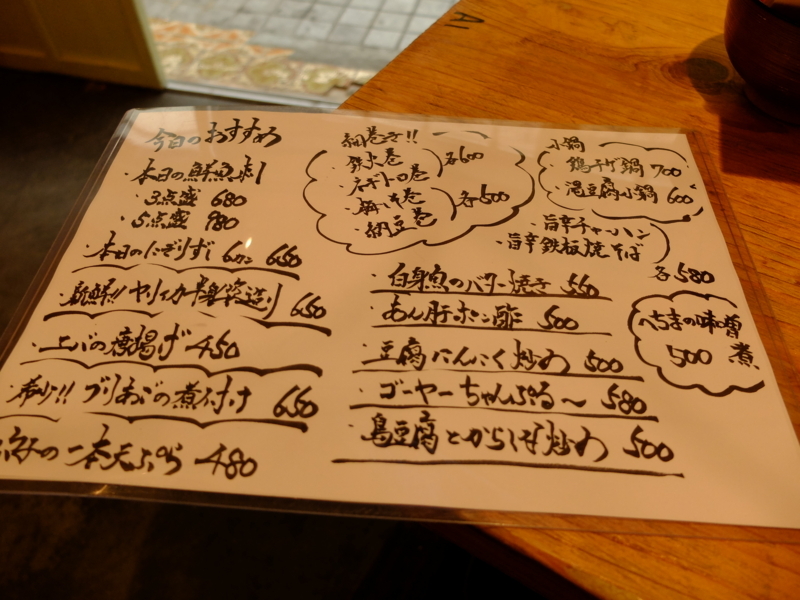 今日のおすすめ
・本日の鮮魚刺
・3点盛 680
・5点盛 980
・本日のにぎりずし 6カン 650
・新鮮!!ヤリイカ 650
・エバの唐揚げ 450
希少!!ブリあごの煮付け 650
の一本天ぷら 480
細巻き!!
・鉄火巻
・ネギトロ巻
各600
・梅しそ巻
・納豆巻
各500
小鍋
・鶏チゲ鍋 700
・湯豆腐小鍋 600
・旨辛チャーハン
・旨辛鉄板焼そば
各580
・白身魚のバター焼き 550
・あん肝ポン酢 500
・豆腐にんにく炒め 500
・ゴーヤーちゃんぷる〜 580
・島豆腐とからし菜炒め 500
へちまの味噌煮
500
A1